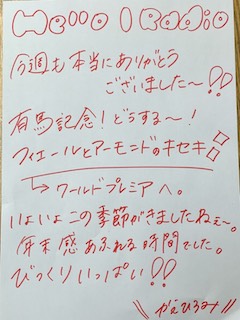 Hello I Radio
今週も本当にありがとう
ございました〜!!
有馬記念!どうする〜!
フィエールとアーモンドのキセキ
↳ワールドプレミアへ。
いよいよこの季節がきましたねぇ〜。
年末感あふれる時間でした。
びっくりいっぱい!!
\\ かえひろみ //